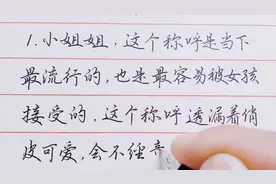 1.小姐姐，这个称呼是当下
最流行的，也是最容易被女孩
接受的，这个称呼透漏着俏
皮可爱，会不经意